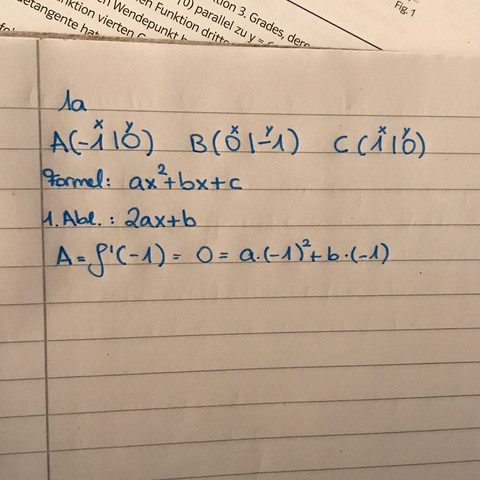 tion 3. Grades, dere
Fig. 1
10) parallel zu y =
en Funktion dritte
n Wendepunkt
nktion vierten G
etangente hat
1a
x y x y x y
A(-1|0) B(0|-1) C(1|0)
Formel: ax²+bx+c
1. Abl.: 2ax+b
A = f'(-1) = 0 = a·(-1)²+b·(-1)